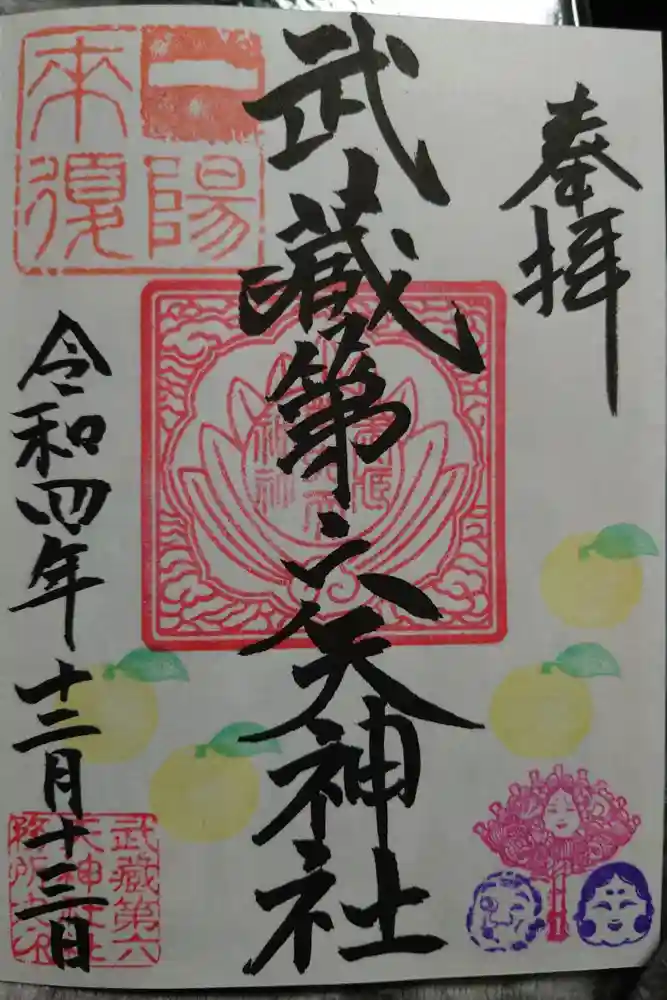 奉拝
武蔵第六天神社
令和四年十二月十三日
一陽
来復
武蔵第六
天神社社
務所之印